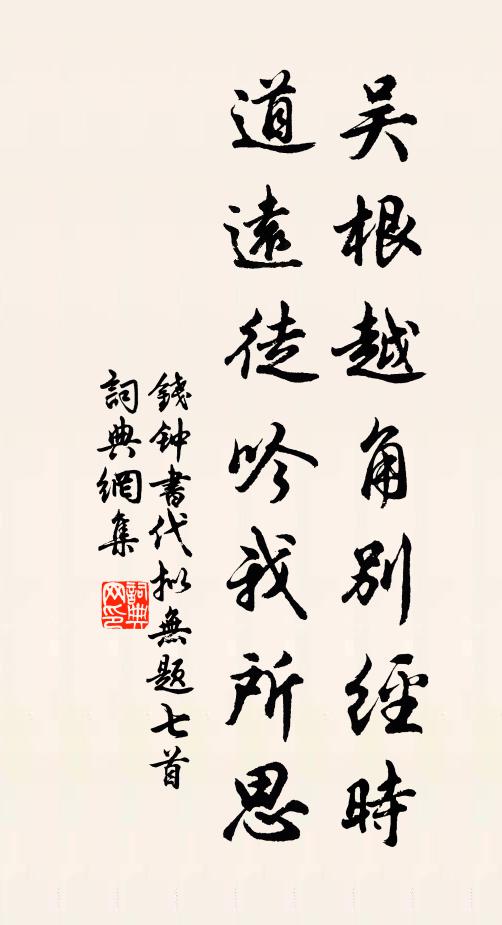 吴根越角別經時
道遠徒吟我所思
錢钟書代拟無题七首
詞典網集
詞典网印